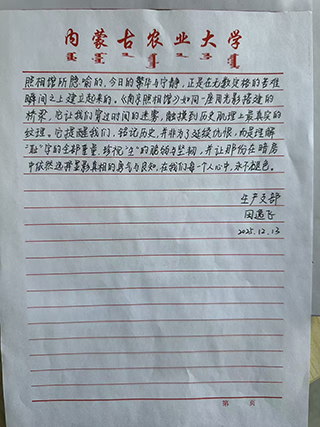 内蒙古农业大学
照相馆所隐喻的，今日的繁华与宁静，正是在无数定格的苦难
瞬间之上建立起来的，《南京照相馆》如同一座用光影搭建的
桥梁，它让我们穿过时间的迷雾，触摸到历史肌理上最真实的
纹理。它提醒我们，铭记历史，并非为了延续仇恨，而是理解
字的全部重量，珍视“生”的脆弱与坚韧，并让那份在暗房
中依然选择显影真相的勇气与良知，在我们每一个人心中，永不褪色。
生产支部
2025.12.13
第 页